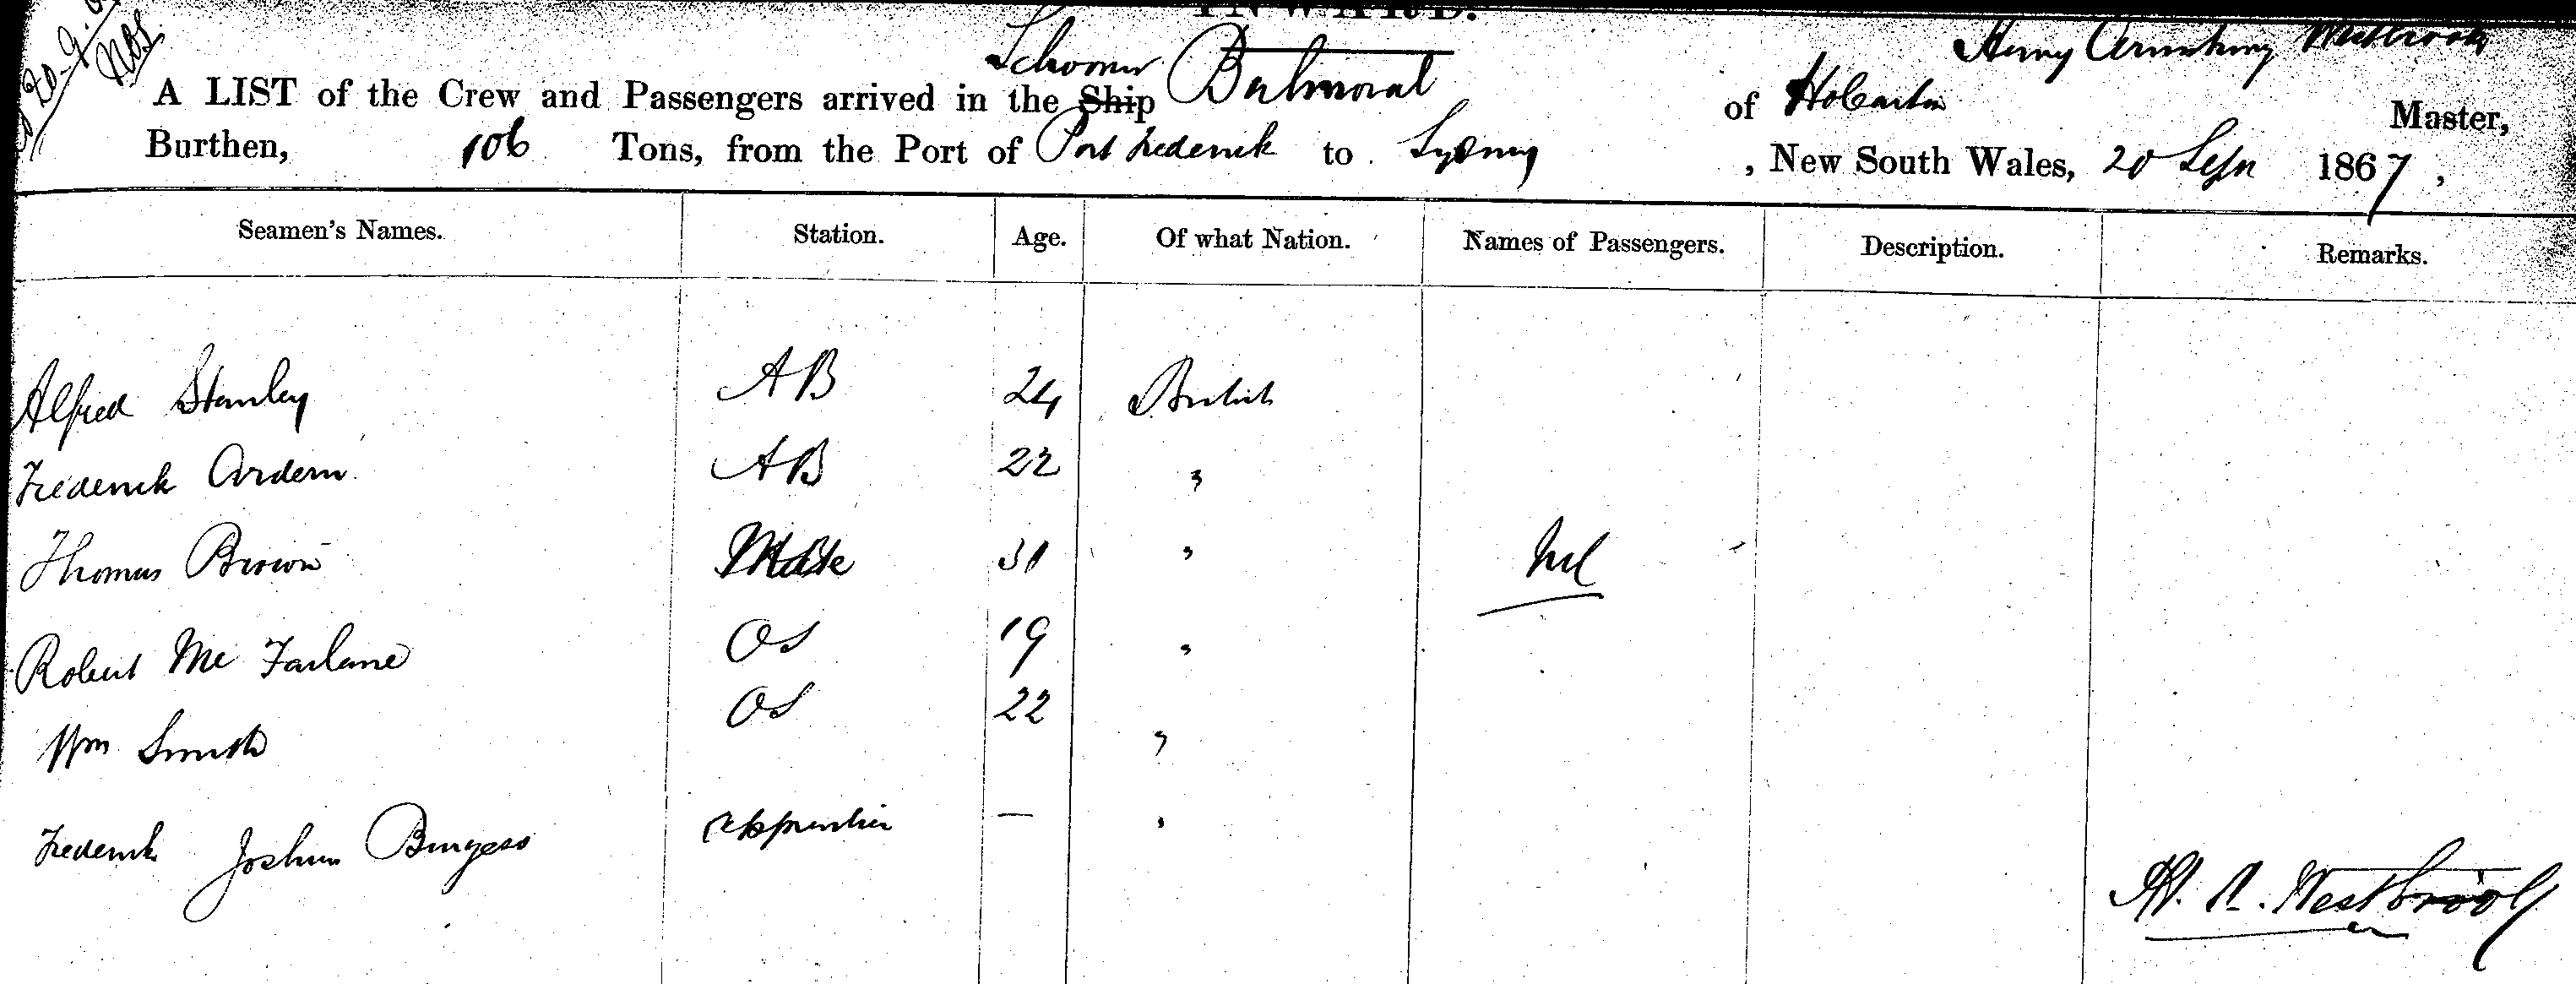 INWARD.
20-9-6
Schooner Balmoral Henry Armstrong Westbrook
A LIST of the Crew and Passengers arrived in the Ship of Hobarton Master,
Burthen, 106 Tons, from the Port of Port Frederick to Sydney , New South Wales, 20 Sepn 1867 ,
Seamen's Names. Station. Age. Of what Nation. Names of Passengers. Description. Remarks.
Alfred Stanley AB 24 British
Frederick Ardern AB 22 "
Thomas Brown Mate 31 " Nil
Robert Mc Farlane OS 19 "
Wm Smith OS 22 "
Frederick Joshua Burgess apprentice — "
H. A. Westbrook